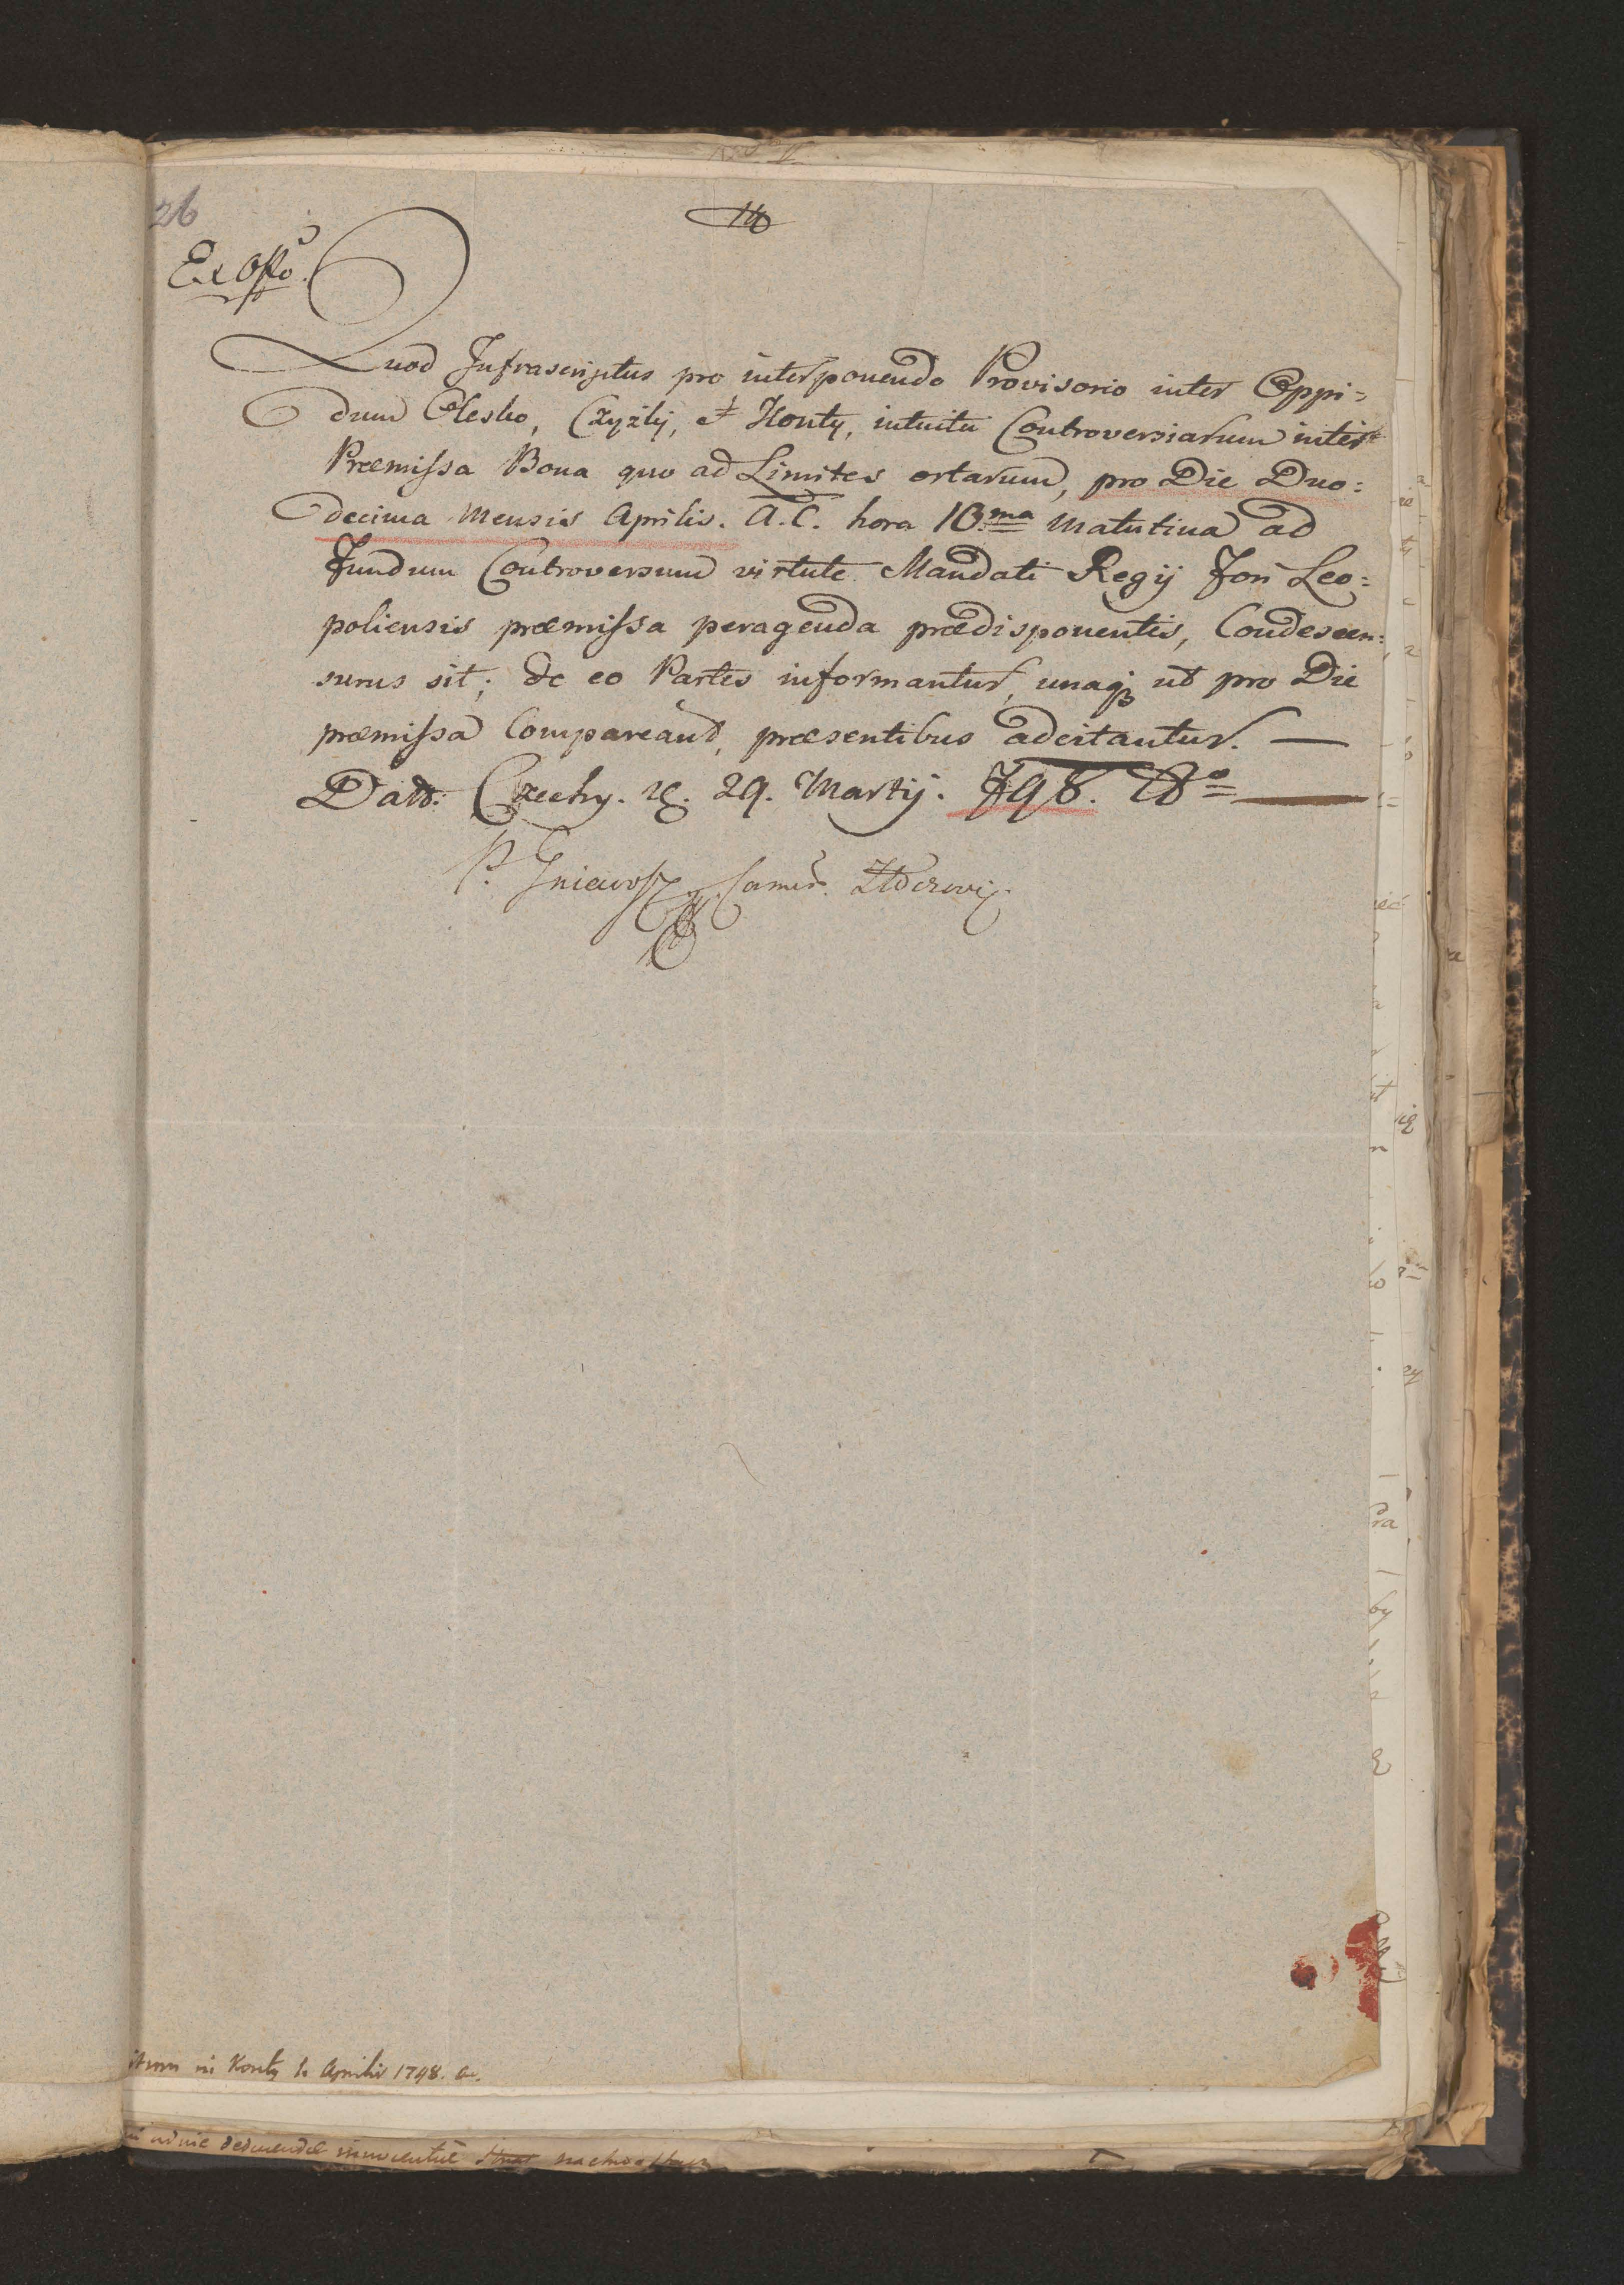 26
Ex Offo.
Quod Infrascriptus pro interponendo Provisorio inter Oppi=
dum Olesko, Czyżky, et Konty, intuitu Controversiarum inter
Præmissa Bona quo ad Limites ortarum, pro Die Duo=
decima Mensis Aprilis. A. C. hora 10.ma Matutina ad
Fundum Controversum virtute Mandati Regij Fori Leo=
poliensis præmissa peragenda prædisponentis, Condescen=
surus sit; de eo Partes informantur, unaq ut pro Die
præmissa Compareant, præsentibus adcitantur. —
Datt: Czechy. 29. Martij. 798.
P. Gniewosz Camer.
in Konty Aprilis 1798. a.